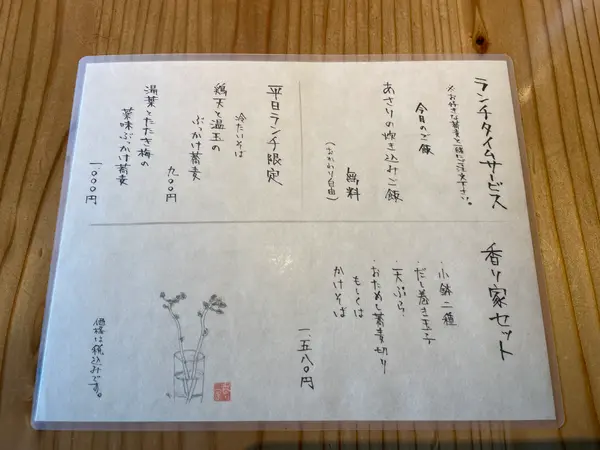 ランチタイムサービス
※お好きな蕎麦と一緒にご注文下さい。
今日のご飯
あさりの炊き込みご飯
無料
（おかわり自由）
平日ランチ限定
冷たいそば
鶏天と温玉の
ぶっかけ蕎麦
九〇〇円
湯葉とたたき梅の
薬味ぶっかけ蕎麦
一、〇〇〇円
香り家セット
・小鉢二種
・だし巻き玉子
・天ぷら
・おためし蕎麦切り
もしくは
かけそば
一五八〇円
価格は税込みです。